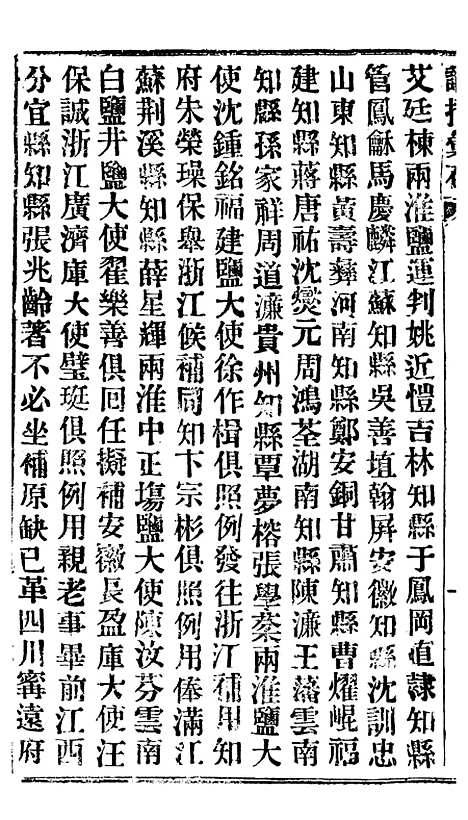 艾廷棟兩淮鹽運判姚近愷吉林知縣于鳳岡直隸知縣
管鳳龢馬慶麟江蘇知縣吳善塡翰屏安徽知縣沈訓忠
山東知縣黃壽彝河南知縣鄭安銅甘肅知縣曹燿崐福
建知縣蔣唐祐沈爕元周鴻荃湖南知縣陳濂王藩雲南
知縣孫家祥周道濂貴州知縣覃夢榕張學棻兩淮鹽大
使沈鍾銘福建鹽大使徐作楫俱照例發往浙江補用知
府朱榮璪保舉浙江候補同知卞宗彬俱照例用俸滿江
蘇荆溪縣知縣薛星輝兩淮中正塲鹽大使陳汝芬雲南
白鹽井鹽大使翟樂善俱回任擬補安徽長盈庫大使汪
保誠浙江廣濟庫大使璧珽俱照例用親老事畢前江西
分宜縣知縣張兆齡著不必坐補原缺已革四川甯遠府